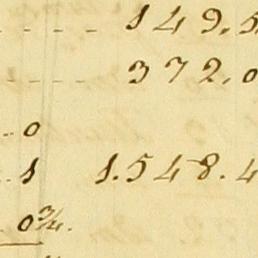 1 4 9. 5
3 7 2. 0
0
1 1. 5 4 8. 4
0 3/4.